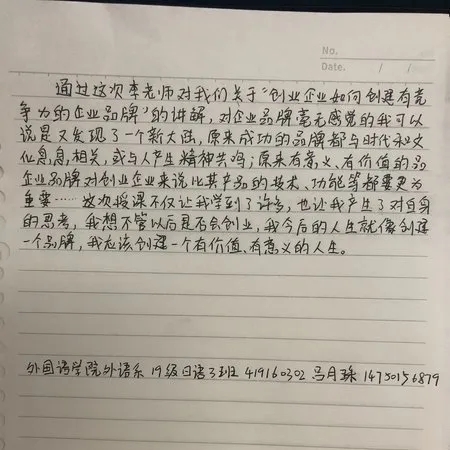 No.
Date. / /
通过这次李老师对我们关于“创业企业如何创建有竞
争力的企业品牌”的讲解,对企业品牌毫无感觉的我可以
说是又发现了一个新大陆,原来成功的品牌都与时代和文
化息息相关,或与人产生精神共鸣;原来有意义、有价值的品
企业品牌对创业企业来说比其产品的技术、功能等都要更为
重要……这次授课不仅让我学到了许多,也让我产生了对自身
的思考,我想不管以后是否会创业,我今后的人生就像创建
一个品牌,我应该创建一个有价值、有意义的人生。
外国语学院外语系 19级日语3班 419160302 马月珠 14750156879